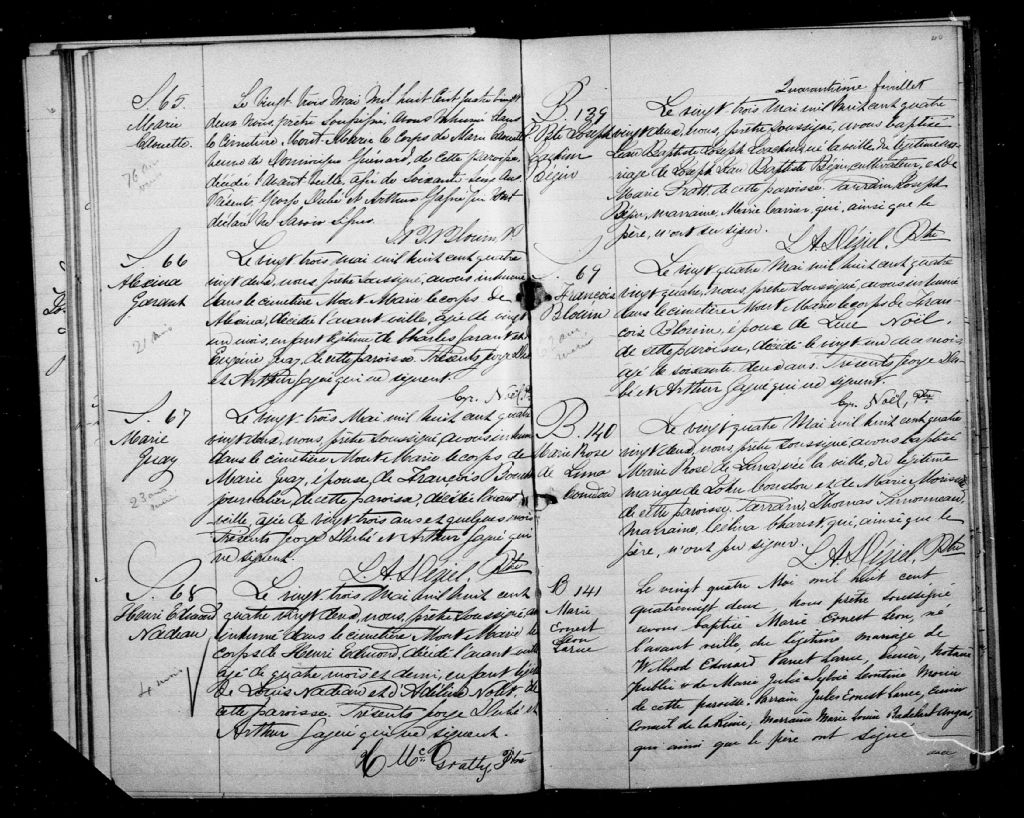 S. 65
Marie
Clouette
76 ans
Le vingt trois Mai Mil huit Cent quatre vingt
deux Nous, prêtre Soussigné avons inhumé dans
le Cimetière Mont-Marie le Corps de Marie Clouette
de cette paroisse,
décédée l'avant veille, agée de Soixante seize ans
Présents George Dubé et Arthur Gagné qui ont
déclaré ne Savoir Signer.
S. 66
Alexina
Garant
21 ans
Le vingt trois mai mil huit cent quatre
vingt deux, nous, prêtre soussigné, avons inhumé
dans le cimetière Mont Marie le corps de
Alexina, décédée l'avant veille, agée de vingt
un ans, enfant légitime de Charles Garant et
Eugénie Guay, de cette paroisse. Présents George Dubé
et Arthur Gagné qui ne signent.
Cyr. Noël, Ptre
S. 67
Marie
Guay
23 ans
Le vingt trois Mai mil huit cent quatre
vingt deux, nous, prêtre soussigné avons inhumé
dans le cimetière Mont Marie le corps de
Marie Guay, épouse de François
journalier, de cette paroisse, décédée l'avant
veille, agée de vingt trois ans et quelques mois
Présents George Dubé et Arthur Gagné qui
ne signent.
L. A. Déziel, Ptre
S. 68
Henri Edmond
Nadeau
4 mois
Le vingt trois Mai mil huit cent
quatre vingt deux, nous, prêtre soussigné avons
inhumé dans le cimetière Mont Marie le
corps de Henri Edmond, décédé l'avant veille
agé de quatre mois et demi, enfant légitime
de Louis Nadeau et d'Adeline Nolet, de
cette paroisse. Présents George Dubé et
Arthur Gagné qui ne signent.
Mc Gratty Ptre
40
Quarantième feuillet
B. 139
Bte Joseph
Joachim
Bégin
Le vingt trois Mai mil huit cent quatre
vingt deux, nous, prêtre soussigné, avons baptisé
Jean Baptiste Joseph Joachim né la veille du légitime ma-
riage de Joseph Jean Baptiste Bégin, cultivateur, et de
Marie de cette paroisse. Parrain, Joseph
Bégin, marraine, Marie Carrier, qui, ainsi que le
père, n'ont su signer.
L. A. Déziel, Ptre
S. 69
François
Blouin
62 ans
Le vingt quatre Mai mil huit cent quatre
vingt quatre, nous, prêtre soussigné, avons inhumé
dans le cimetière Mont Marie le corps de Fran-
çois Blouin, époux de Luce Noël,
de cette paroisse, décédé le vingt un de ce mois
agé de soixante deux ans. Présents George Du-
bé et Arthur Gagné qui ne signent.
Cyr. Noël, Ptre
B. 140
Marie Rose
de Lima
Coudon
Le vingt quatre Mai mil huit cent quatre
vingt deux, nous, prêtre soussigné, avons baptisé
Marie Rose de Lima, née la veille, du légitime
mariage de John et de Marie
de cette paroisse, Parrain, Thomas Simoneau,
marraine, qui, ainsi que le
père, n'ont pu signer.
L. A. Déziel, Ptre
B 141
Marie
Ernest
Léon
Larue
Le vingt quatre Mai mil huit cent
quatrevingt deux nous prêtre soussigné
avons baptisé Marie Ernest Léon, né
l'avant veille, du légitime mariage de
Wilbrod Edouard Larue, Ecuier, notaire
public & de Marie Julie Sylvie Léontine Morin
de cette paroisse. Parrain Jules Ernest Larue, Ecuier
Conseil de la Reine, Marraine Marie Louise
qui ainsi que le père ont signé